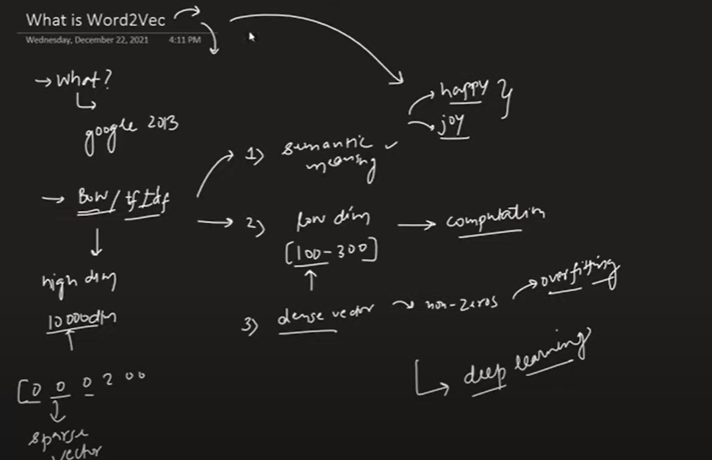 What is Word2Vec
Wednesday, December 22, 2021 4:11 PM
→ What?
google 2013
→ BOW/tfIdf
high dim
10000dim
[0 0 0 2 0 0
sparse
vector
1) semantic
meaning ✓
happy }
joy
2) low dim → computation
[100-300]
3) dense vector → non-zeros → overfitting
deep learning